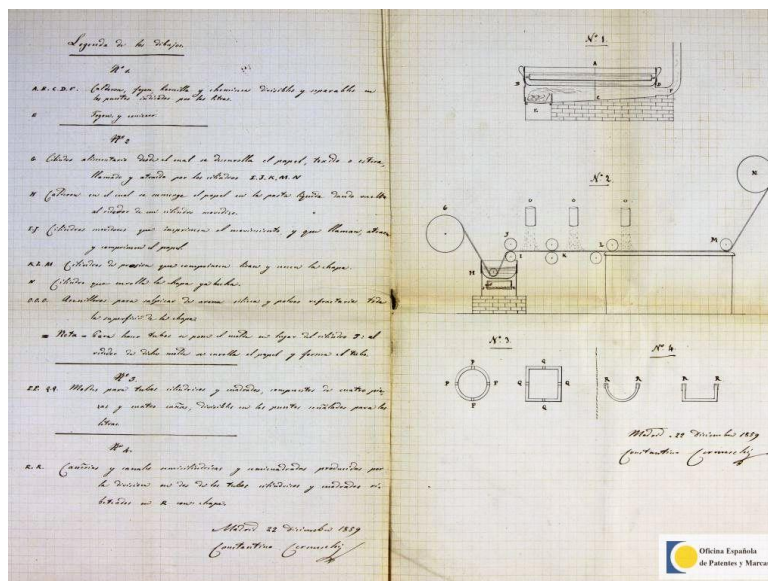 Leyenda de los dibujos.
Nº 1.
A.B.C.D.F. Caldera, fogon, hornilla y chimenea divisibles y separables en
los puntos indicados por las letras.
E Fogon y cenicero.
Nº 2
G Cilindro alimentario desde el cual se desenrolla el papel, texido o estera,
llamado y atraido por los cilindros I.J.K.M.N
H Caldera en el cual se sumerge el papel en la pasta liquida dando vuelta
al rededor de un cilindro movedizo.
I.J Cilindros motores que imprimen el movimiento y que llaman, atraen
y comprimen el papel.
K.L.M Cilindros de presion que comprimen lisan y unen la chapa.
N Cilindro que enrolla la chapa ya hecha.
O.O.O. Arenilleras para salpicar de arena silicea y polvos refractarios toda
la superficie de la chapa.
= Nota = Para hacer tubos se pone el molde en lugar del cilindro J: al
rededor de dicho molde se enrolla el papel y forma el tubo.
Nº 3.
P.P. Q.Q. Moldes para tubos cilindricos y cuadrados, compuestos de cuatro pie-
zas y cuatro cuñas, divisibles en los puntos señalados para las
letras.
Nº 4.
R.R. Canales semicilindricos y semicuadrados producidos por
la division en dos de los tubos cilindricos y cuadrados
en R como chapa.
Madrid 22 Diciembre 1859
Constantino Cernuschi
Nº 1.
A
B
D
C
F
E
Nº 2
N
G
O
O
O
J
L
M
I
K
H
Nº 3.
P
P
P
P
Q
Q
Q
Q
Nº 4.
R
R
R
R
Madrid 22 Diciembre 1859
Constantino Cernuschi
Oficina Española
de Patentes y Marcas